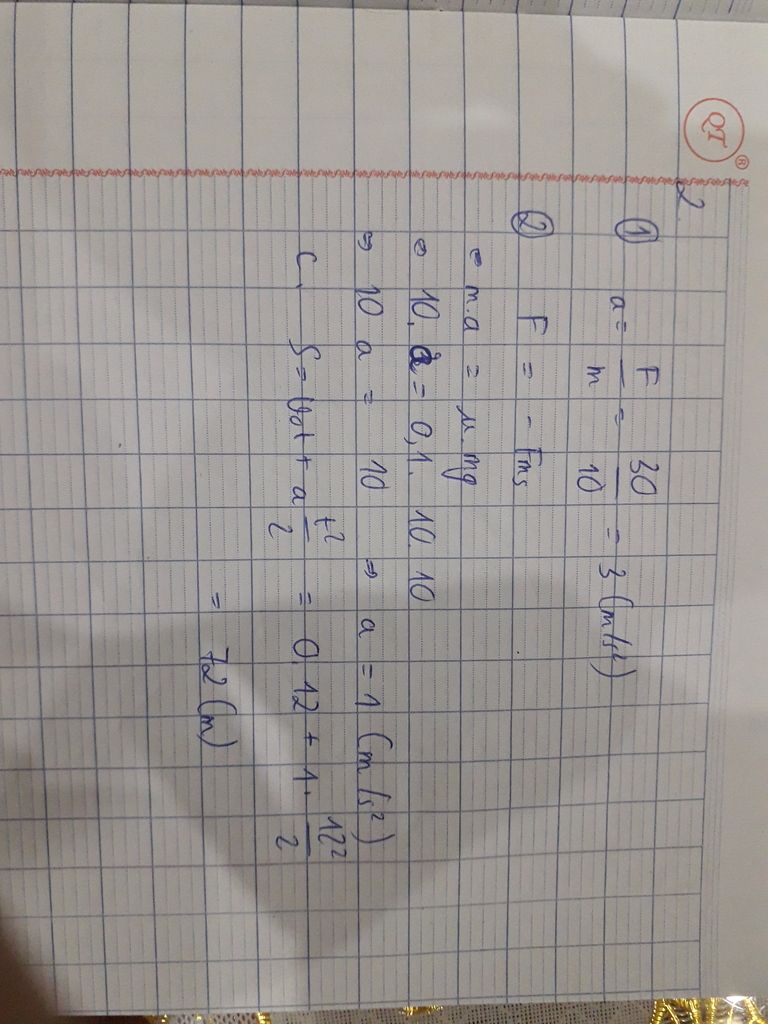 QT ®
2.
① a = F/m = 30/10 = 3 (m/s²)
② F = - Fms
⇔ m.a = μ.mg
⇔ 10.a = 0,1. 10.10
⇒ 10 a = 10 ⇒ a = 1 (m/s²)
C. S = V₀t + a t²/2 = 0.12 + 1. 12²/2
= 72 (m)